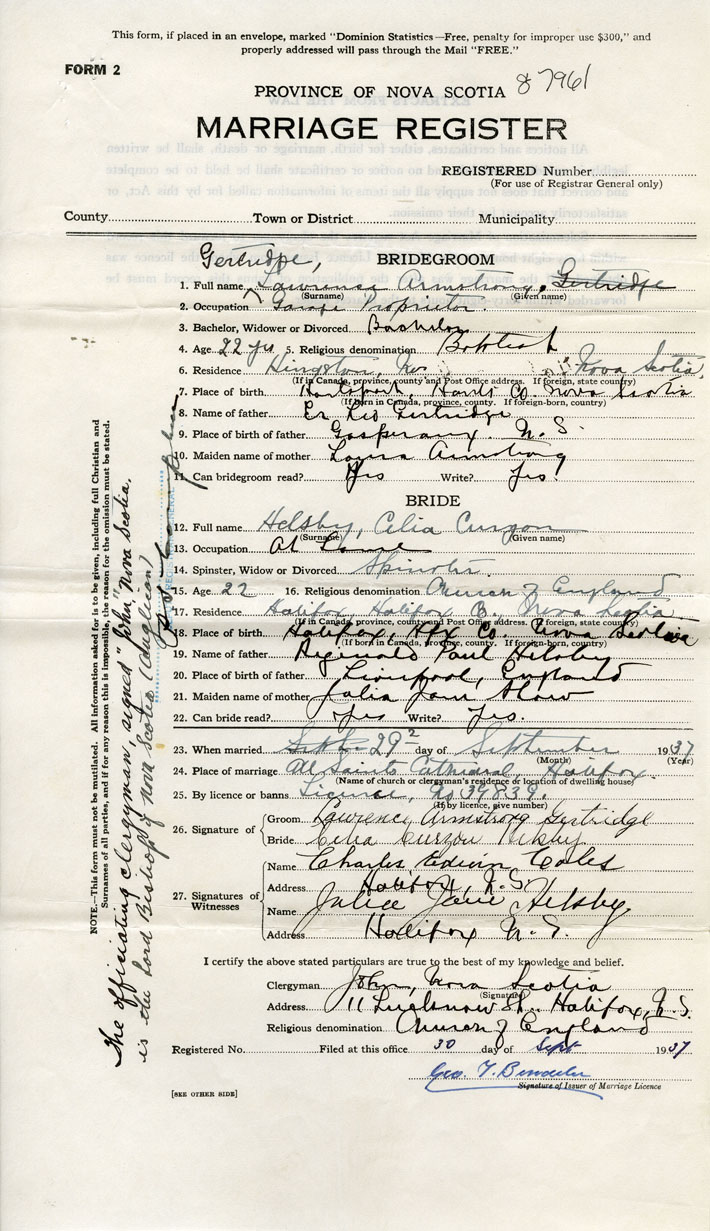 This form, if placed in an envelope, marked "Dominion Statistics—Free, penalty for improper use $300," and
properly addressed will pass through the Mail "FREE."
FORM 2
PROVINCE OF NOVA SCOTIA 87961
MARRIAGE REGISTER
REGISTERED Number
(For use of Registrar General only)
County Town or District Municipality
Gertridge, BRIDEGROOM
1. Full name Lawrence Armstrong, Gertridge
(Surname) (Given name)
2. Occupation Garage Proprietor.
3. Bachelor, Widower or Divorced Bachelor
4. Age 22 yrs 5. Religious denomination Baptist
6. Residence Kingston, Nova Scotia,
(If in Canada, province, county and Post Office address. If foreign, state country)
7. Place of birth Hantsport, Hants Co. Nova Scotia
(If born in Canada, province, county. If foreign-born, country)
8. Name of father Leo Gertridge
9. Place of birth of father Gaspereaux. N.S.
10. Maiden name of mother Laura Armstrong
11. Can bridegroom read? Yes Write? Yes.
BRIDE
12. Full name Helsby, Celia Curzon
(Surname) (Given name)
13. Occupation At home
14. Spinster, Widow or Divorced Spinster.
15. Age 22 16. Religious denomination Church of England
17. Residence Halifax, Halifax Co. Nova Scotia
(If in Canada, province, county and Post Office address. If foreign, state country)
18. Place of birth Halifax, Hfx Co. Nova Scotia
(If born in Canada, province, county. If foreign-born, country)
19. Name of father Reginald Paul Helsby
20. Place of birth of father Liverpool, England
21. Maiden name of mother Julia Jane Shaw
22. Can bride read? Yes Write? Yes.
23. When married 29 day of September 1937
(Month) (Year)
24. Place of marriage All Saints Cathedral, Halifax.
(Name of church or clergyman's residence or location of dwelling house)
25. By licence or banns Licence, No 39839.
(If by licence, give number)
26. Signature of
Groom Lawrence Armstrong Gertridge
Bride Celia Curzon Helsby
27. Signatures of Witnesses
Name Charles Edwin Coles
Address Halifax, N.S.
Name Julia Jane Helsby
Address Halifax N.S.
I certify the above stated particulars are true to the best of my knowledge and belief.
Clergyman John, Nova Scotia
(Signature)
Address 11 Lucknow St. Halifax, N.S.
Religious denomination Church of England
Registered No. Filed at this office 30 day of Sept 1937
Geo. T.
Signature of Issuer of Marriage Licence
[SEE OTHER SIDE]
NOTE.—This form must not be mutilated. All information asked for is to be given, including full Christian and
Surnames of all parties, and if for any reason this is impossible, the reason for the omission must be stated.
The officiating clergyman, signed "John, Nova Scotia.
is the Lord Bishop of Nova Scotia (Anglican)